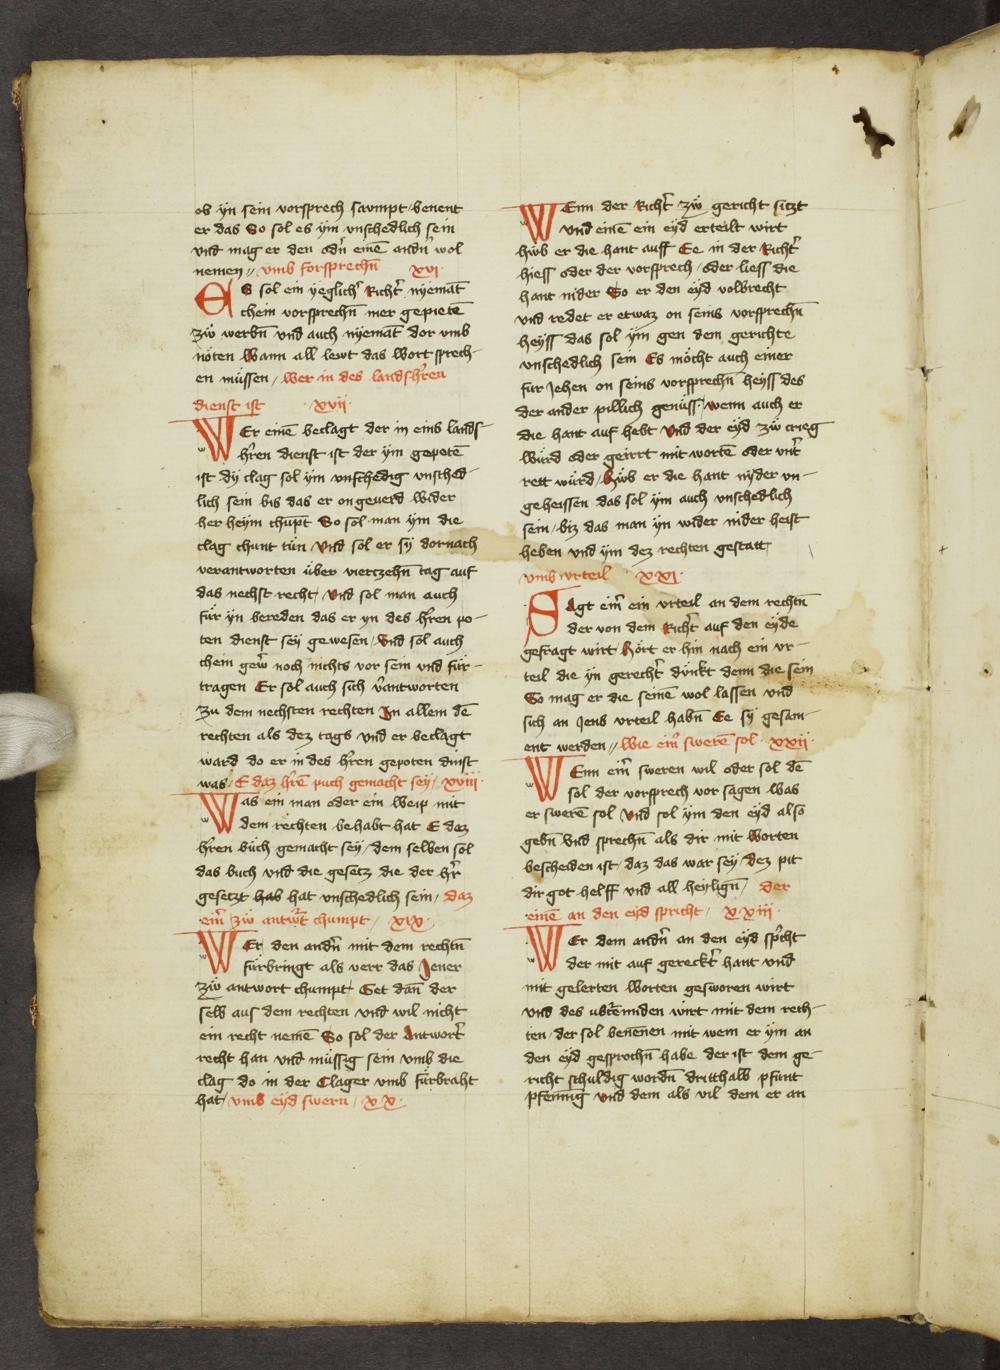 ob ÿn sein vorsprech saumpt / benent
er das So sol es ÿm vnschedlich sein
vnd mag er den odn̄ einē andn̄ wol
nemen // vmb forsprechn̄ xvi
ES sol ein ÿeglichr̄ Richtr̄ nÿemāt
chein vorsprechn̄ mer gepietē
zẅ werbn̄ vnd auch nÿemāt dor vmb
nöten Wann all lewt das Wort sprech-
en müssen / wer in des landshr̄ren
dienst ist · xvii ·
WEr einē beclagt der in eins lands-
hr̄ren dienst ist der ÿm gepotē
ist dÿ clag sol ÿm vnschedig vnsched-
lich sein bis das er on geuerd wider
her heym chupt So sol man ÿm die
clag chunt tün Vnd sol er sÿ dornach
verantworten über vierczehn̄ tag auf
das nechst recht / Vnd sol man auch
für ÿn bereden das er yn des hr̄ren po-
ten dienst seÿ gewesen / Vnd sol auch
chein gew̄ noch nichts vor sein vnd für-
tragen Er sol auch sich v̄antworten
zu dem nechsten rechten In allem dē
rechten als dez tags vnd er beclagt
ward do er in des hr̄ren gepoten dinst
was / E daz hr̄rē puch gemacht seÿ / xviii ·
Was ein man oder ein Weip mit
dem rechten behabt hat E dez
hr̄ren büch gemacht seÿ / dem selben sol
das buch vnd die gesetz die der hr̄r
gesetzt hab hat vnschedlich sein / daz
eim̄ zẅ antwr̄t chumpt / xix ·
WEr den andn̄ mit dem rechtn̄
fürbringt als verr das Jener
zẅ antwort chumpt Get dan̄ der
selb aus dem rechten vnd wil nicht
ein recht nemē So sol der Antwortr̄
recht han vnd müssig sein vmb die
clag do in der Clager vmb fürbraht
hat / vmb eÿd swern / xx ·
WEnn der Richtr̄ zẅ gericht siczt
vnd einē ein eÿd erteilt wirt
hẅb er die hant auff Ee in der Richtr̄
hiess oder der vorsprech / oder liess die
hant nider So er den eÿd volbrecht
vnd redet er etwaz on seins vorsprechn̄
heÿss das sol ÿm gen dem gerichte
vnschedlich sein Es möcht auch einer
für Jehen on seins vorsprechn̄ heÿss des
der ander pillich genüss / wenn auch er
die hant auf hebt Vnd der eÿd zẅ crieg
würd oder geirrt mit wortē oder vntr̄
rett würd / Hẅb er die hant nÿder vn-
geheissen das sol ÿm auch vnschedlich
sein / biz das man ÿn wider nider heist
heben vnd ÿm dez rechten gestatt
vmb vrteil xxi ·
SAgt eim̄ ein vrteil an dem rechtn̄
der von dem Richtr̄ auf den eÿde
gefragt wirt / Hört er hin nach ein vr-
teil die ÿn gerechtr̄ dünkt denn die sein
So mag er die seinē wol lassen vnd
sich an Jens vrteil habn̄ Ee sÿ gesam-
ent werden // Wie eim̄ swerē sol · xxii ·
WEnn eim̄ sweren wil oder sol dē
sol der vorsprech vor sagen was
er swerē sol Vnd sol ÿm den eÿd also
gebn̄ Vnd sprechn̄ als dir mit Worten
bescheiden ist / daz das war seÿ / dez pit
dir got helff vnd all heÿlign̄ / der
einē an den eÿd spricht / xxiii ·
WEr dem andn̄ an den eÿd sp̄cht
der mit auf gerecktr̄ hant vnd
mit gelerten Worten gesworen wirt
vnd des vbr̄miden wirt mit dem rech-
ten / der sol benēnen mit wem er ÿm an
den eÿd gesprochn̄ habe der ist dem ge-
richt schuldig wordn̄ dritthalb pfunt
pfen̄nig vnd dem als vil dem er an